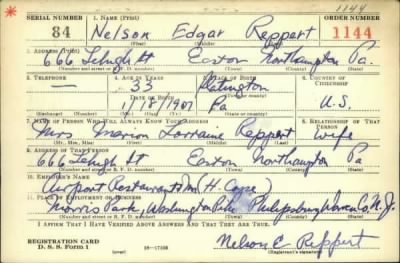 1144
SERIAL NUMBER 1. NAME (Print) ORDER NUMBER
84 Nelson Edgar Reppert 1144
(First) (Middle) (Last)
2. ADDRESS (Print)
666 Lehigh St Easton Northampton Pa.
(Number and street or R. F. D. number) (Town) (County) (State)
3. TELEPHONE 4. AGE IN YEARS 5. PLACE OF BIRTH 6. COUNTRY OF CITIZENSHIP
— 33 Slatington
DATE OF BIRTH
1/ /1907 Pa U.S.
7. NAME OF PERSON WHO WILL ALWAYS KNOW YOUR ADDRESS 8. RELATIONSHIP OF THAT PERSON
Mrs Marion Lorraine Reppert wife
(Mr., Mrs., Miss) (First) (Middle) (Last)
9. ADDRESS OF THAT PERSON
666 Lehigh St Easton Northampton Pa
(Number and street or R. F. D. number) (Town) (County) (State)
10. EMPLOYER'S NAME
Airport Restaurant (H. )
11. PLACE OF EMPLOYMENT OR BUSINESS
Morris Park, Washington Pike Philipsburg Warren Co. N. J.
(Number and street or R. F. D. number) (Town) (County) (State)
I AFFIRM THAT I HAVE VERIFIED ABOVE ANSWERS AND THAT THEY ARE TRUE.
REGISTRATION CARD
D. S. S. Form 1 (over) Nelson E Reppert
(Registrant's signature)